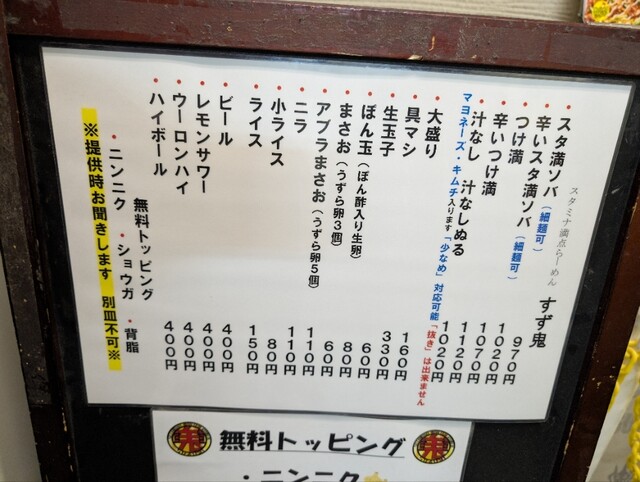 スタミナ満点らーめん すず鬼
・スタ満ソバ（細麺可） 970円
・辛いスタ満ソバ（細麺可） 1020円
・つけ満 1070円
・辛いつけ満 1120円
・汁なし 汁なしぬる 1020円
マヨネーズ・キムチ入ります「少なめ」対応可能「抜き」は出来ません
・大盛り 160円
・具マシ 330円
・生玉子 60円
・ぽん玉（ぽん酢入り生卵） 80円
・まさお（うずら卵3個） 60円
・アブラまさお（うずら卵5個） 110円
・ニラ 110円
・小ライス 80円
・ライス 150円
・ビール 400円
・レモンサワー 400円
・ウーロンハイ 400円
・ハイボール 400円
無料トッピング
・ニンニク ・ショウガ ・背脂
※提供時お聞きします 別皿不可※
無料トッピング
・ニンニク